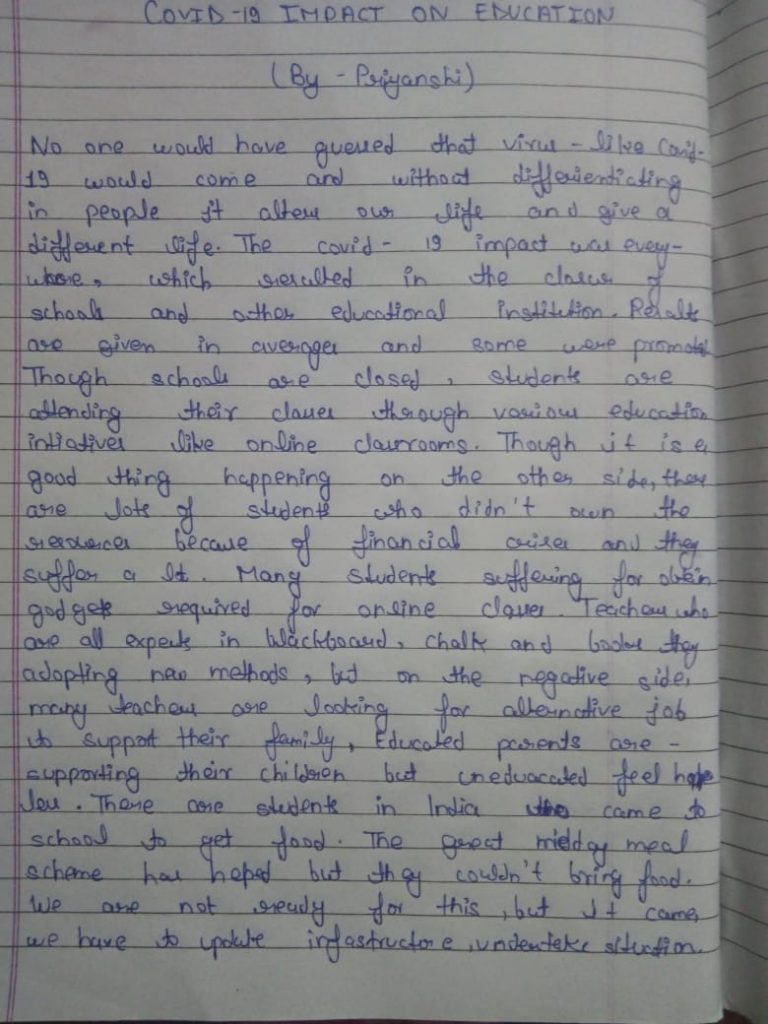 COVID-19 IMPACT ON EDUCATION
(By - Priyanshi)
No one would have guessed that virus - like Covid-
19 would come and without differienticting
in people it alters our life and give a
different life. The covid - 19 impact was every-
where, which resulted in the closure of
schools and other educational institution. Results
are given in averages and some were promoted
Though schools are closed, students are
attending their classes through various education
intiatives like online classrooms. Though it is a
good thing happening on the other side, there
are lots of students who didn't own the
resources because of financial crises and they
suffer a lt. Many students suffering for obtein
gadgets required for online classes. Teachers who
are all experts in blackboard, chalk and books they
adopting new methods, but on the negative side,
many teachers are looking for alternative job
to support their family, Educated parents are -
supporting their children but uneduacated feel hope
less. There are students in India who came to
school to get food. The great midday meal
scheme has heped but they couldn't bring food.
We are not ready for this, but it came,
we have to update infastructore, undenteke situction.